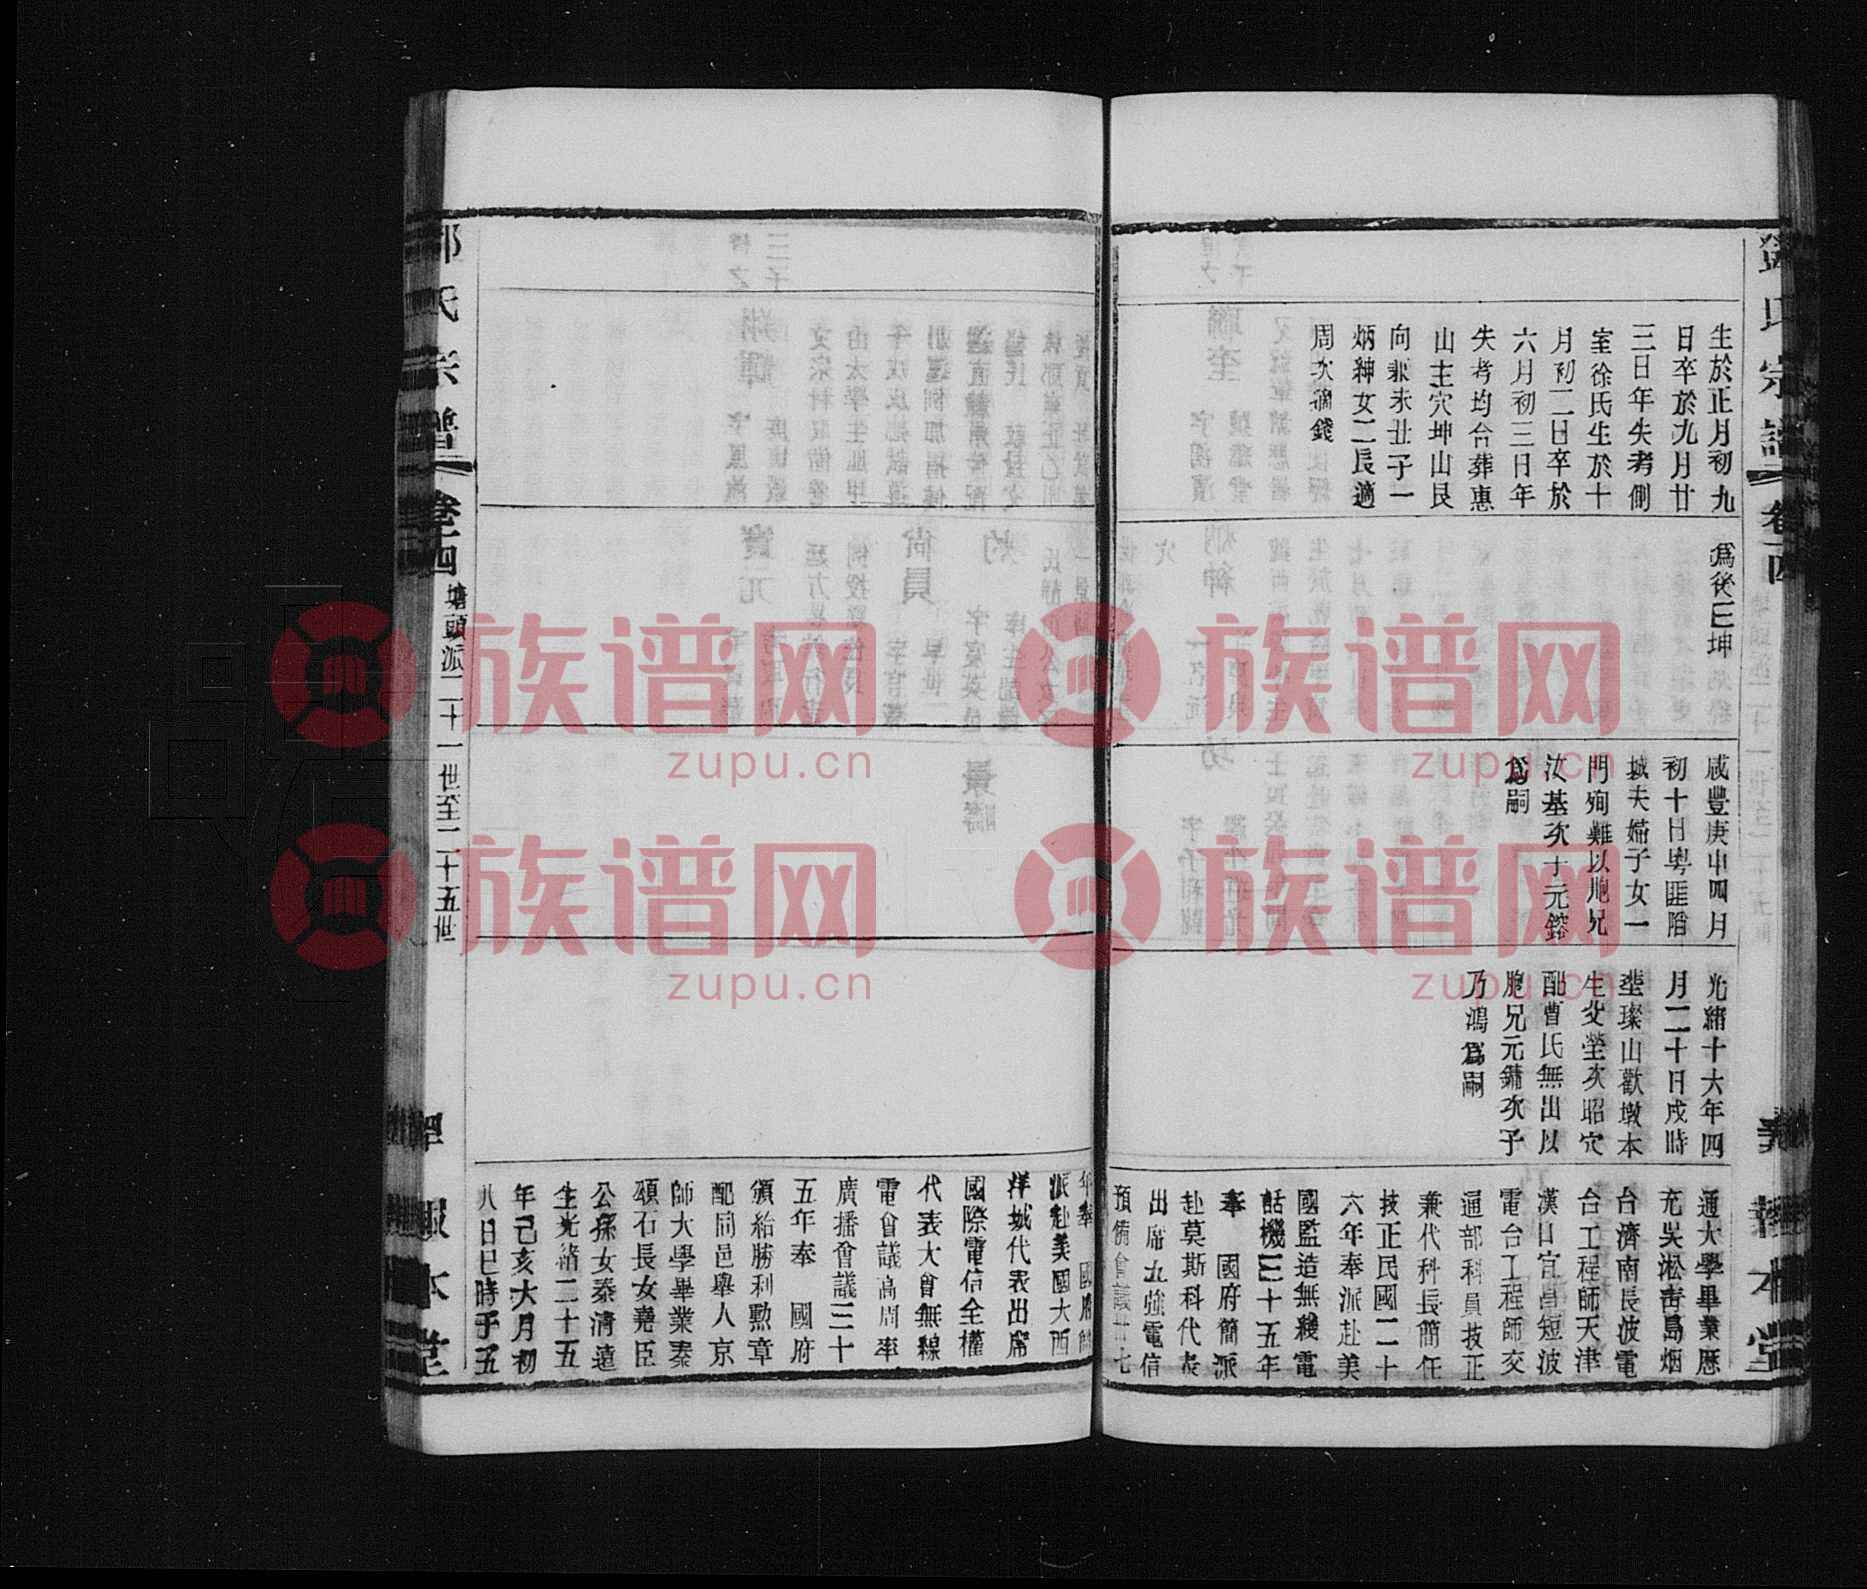 氏宗譜
卷十四
生於正月初九
日卒於九月廿
三日年失考側
室徐氏生於十
月初二日卒於
六月初三日年
失考均合葬惠
山主穴坤山艮
向兼未丑子一
炳紳女二長適
周次適錢
爲後
坤
咸豐庚申四月
初十日粵匪陷
城夫婦子女一
門殉難以胞兄
汝基次子元鎔
爲嗣
光緒十六年四
月二十日戌時
塟璨山歡墩本
生父塋次昭穴
配曹氏無出以
胞兄元鏞次子
乃鴻爲嗣
通大學畢業歷
充吳淞青島烟
台濟南長波電
台工程師天津
漢口宜昌短波
電台工程師交
通部科員技正
兼代科長簡任
技正民國二十
六年奉派赴美
國監造無綫電
話機三十五年
奉 國府簡派
赴莫斯科代表
出席九強電信
預備會議卅七
年奉 國府簡
派赴美國大西
洋城代表出席
國際電信全權
代表大會無線
電會議高周率
廣播會議三十
五年奉 國府
頒給勝利勳章
配同邑舉人京
師大學畢業秦
頌石長女堯臣
公孫女秦清遠
生光緒二十五
年己亥六月初
八日巳時子五
氏宗譜
卷十四
塘頭派二十一世至二十五世
報本堂
族谱网
zupu.cn
族谱网
zupu.cn
族谱网
zupu.cn
族谱网
zupu.cn